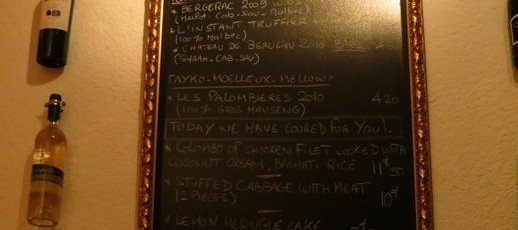 * BERGERAC 2009
(MERLOT-CAB-SAUV MALBEC)
* L'INSTANT TRUFFIER
(100% MALBEC)
* CHATEAU DE BEAULIEU 2010
(SYRAH-CAB-SAU)
ΓΛΥΚΟ-MOELLEUX-MELLOW
* LES PALOMBIERES 2010 4 20
(100% GROS MANSENG)
TODAY WE HAVE COOKED FOR YOU!
* COLOMBO OF CHICKEN FILET COOKED WITH
COCONUT CREAM, BASMATI RICE 11€50
* STUFFED CABBAGE WITH MEAT
(2 PIECES) 10€
* LEMON MERINGUE CAKE